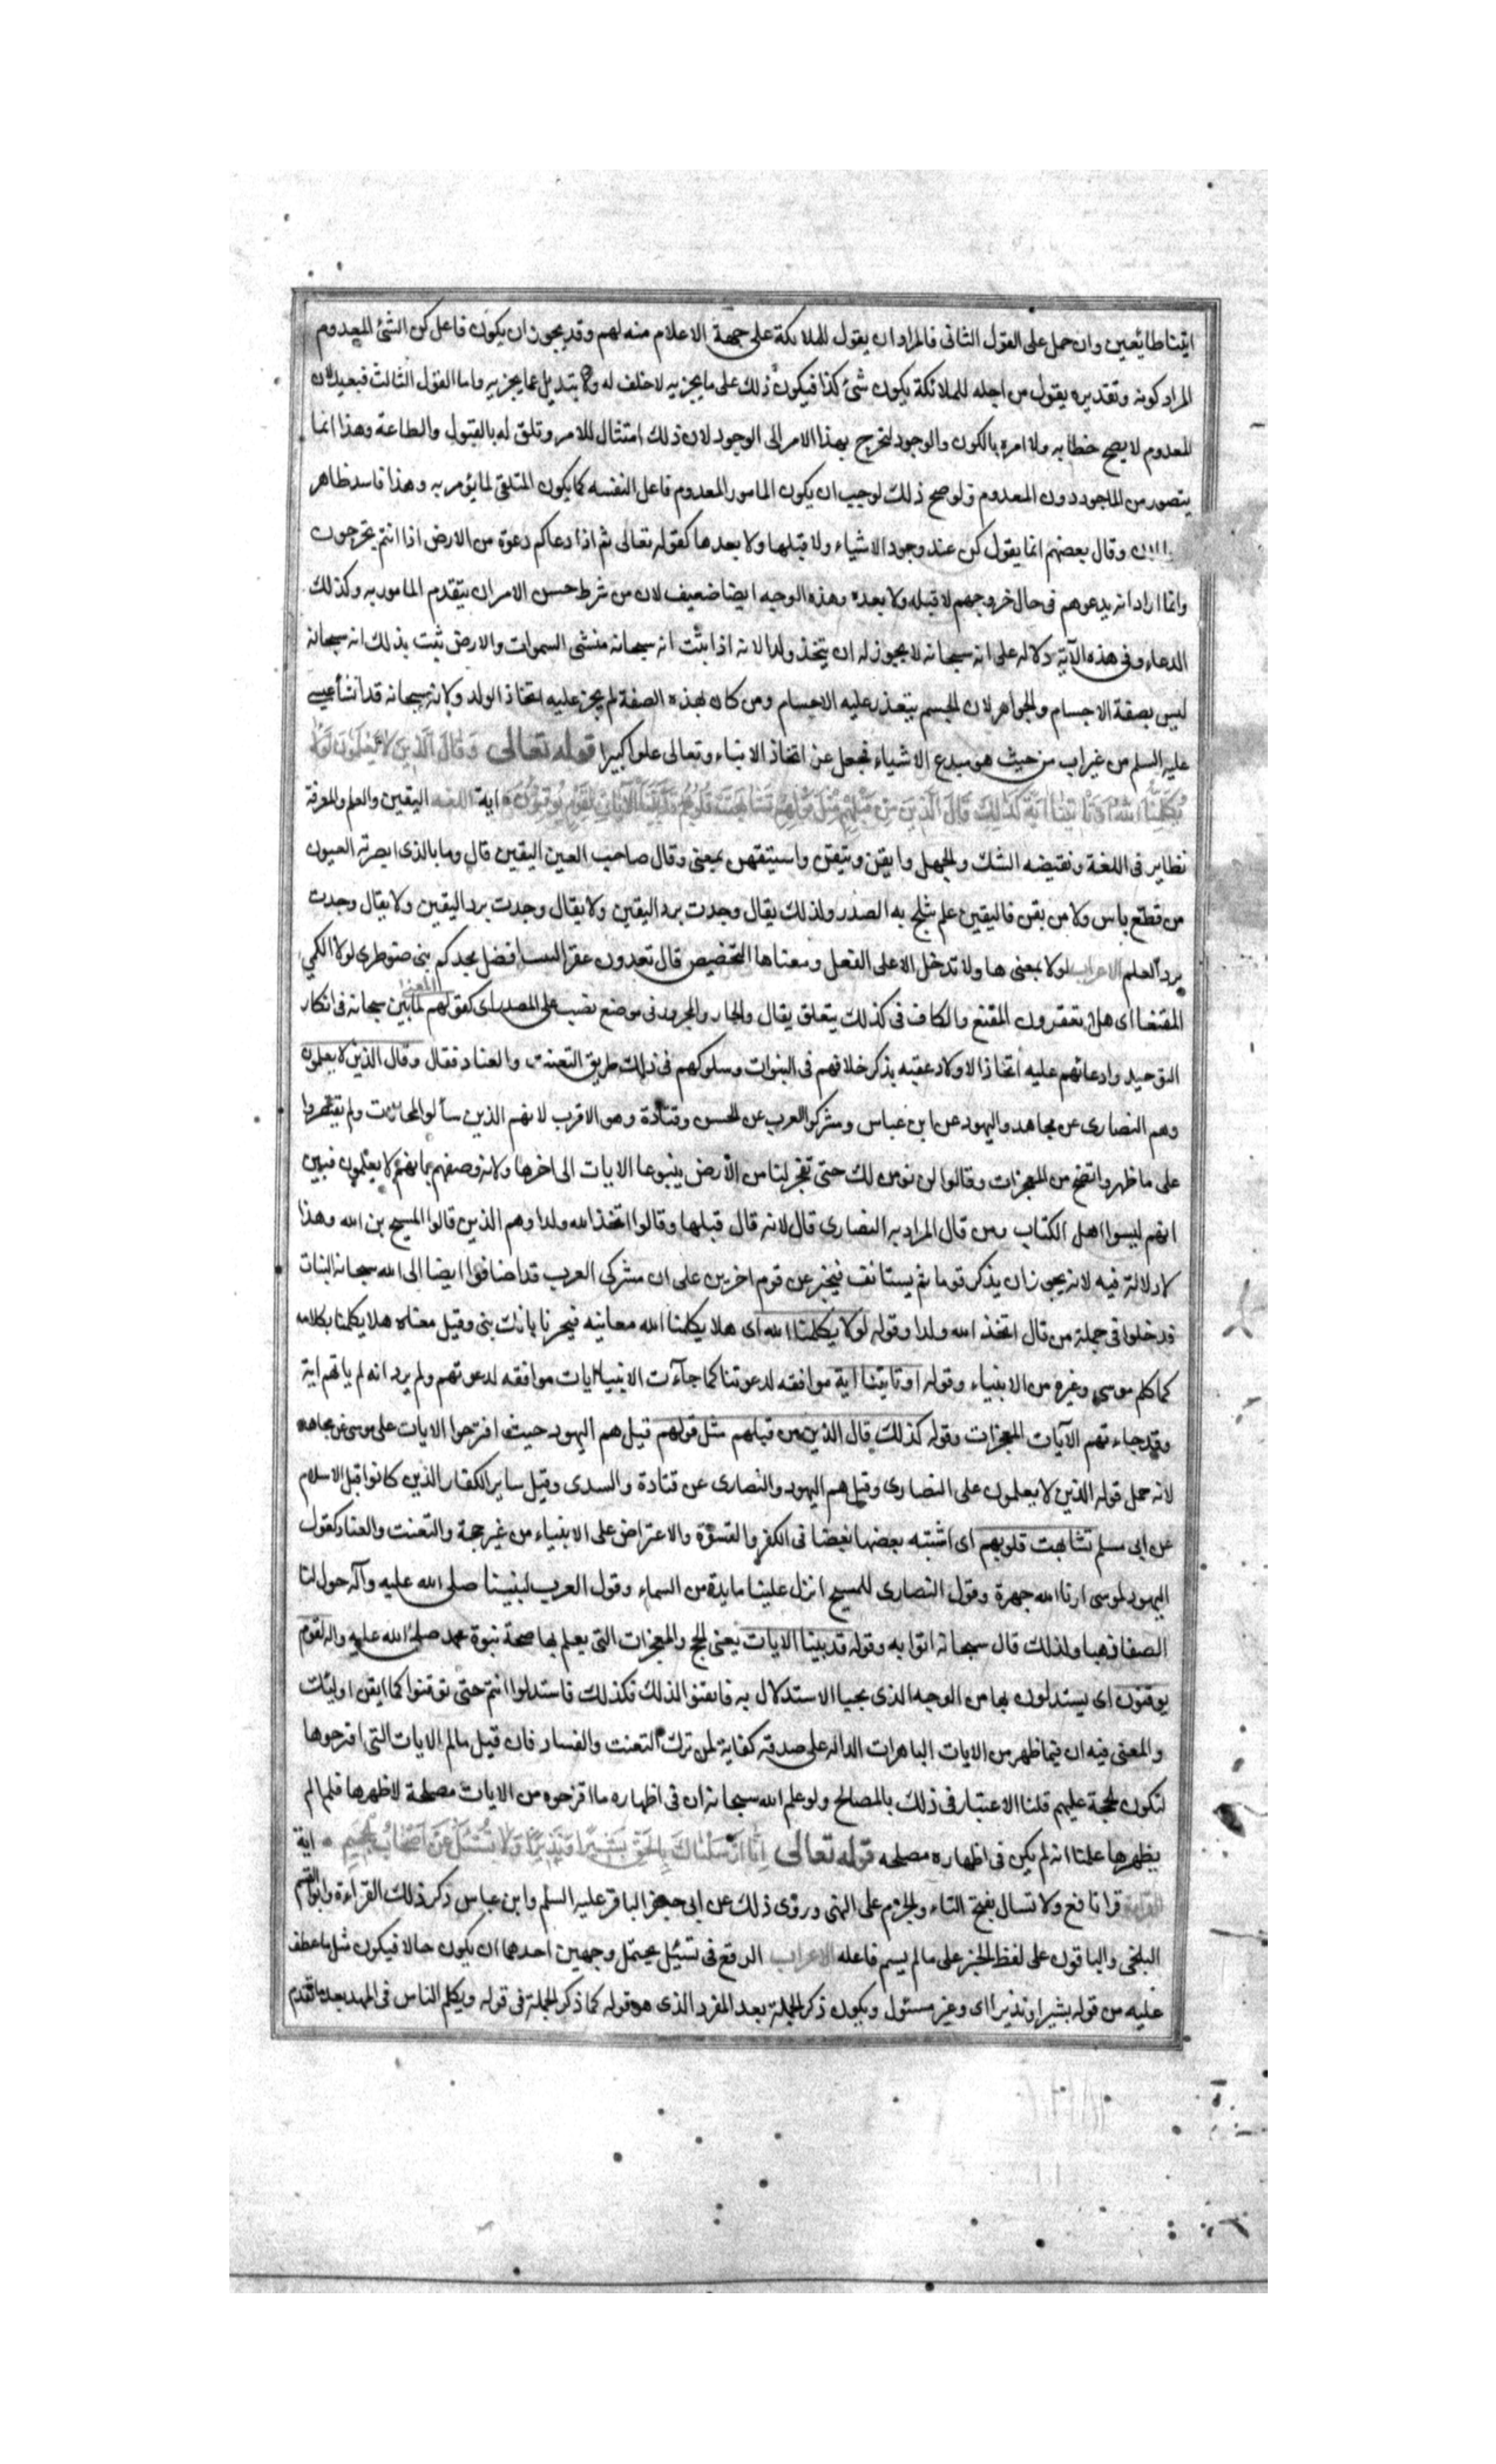 ايتنا طائعين وان حمل على القول الثانى فالمراد ان يقول للملائكة على جهة الاعلام منه لهم وقد يجوز ان يكون فاعل كن الشئ المعدوم
المراد كونه وتقديره يقول من اجله للملائكة يكون شئ كذا فيكون ذلك على ما يخبر به لا خلف له ولا تبديل عما يخبر به واما القول الثالث فبعيد لان
المعدوم لا يصح خطابه ولا امره بالكون والوجود ليخرج بهذا الامر الى الوجود لان ذلك امتثال للامر وتلق له بالقبول والطاعة وهذا انما
يتصور من الماجود دون المعدوم ولو صح ذلك لوجب ان يكون المامور المعدوم فاعل النفسه كما يكون المتلقى لما يؤمر به وهذا فاسد ظاهر
وقال بعضهم انما يقول كن عند وجود الاشياء ولا قبلها ولا بعدها كقوله تعالى ثم اذا دعاكم دعوة من الارض اذا انتم تخرجون
وانما اراد انه يدعوهم فى حال خروجهم لا قبله ولا بعده وهذه الوجه ايضا ضعيف لان من شرط حسن الامر ان يتقدم المامور به وكذلك
الدعاء وفى هذه الآية دلاله على انه سبحانه لا يجوز له ان يتخذ ولدا لانه اذا ثبت انه سبحانه منشئ السموات والارض ثبت بذلك انه سبحانه
ليس بصفة الاجسام والجواهر لان الجسم يتعذر عليه الاجسام ومن كان بهذه الصفة لم يجز عليه اتخاذ الولد ولانه سبحانه قد انشأ عيسى
عليه السلم من غير اب من حيث هو مبدع الاشياء فجعل عن اتخاذ الابناء وتعالى علوا كبيرا قوله تعالى وقال الذين لا يعلمون لولا
يكلمنا الله او تاتينا اية كذلك قال الذين من قبلهم مثل قولهم تشابهت قلوبهم قد بينا الآيات لقوم يوقنون اية اللغه اليقين والعلم والمعرفة
نظاير فى اللغة ونقيضه الشك والجهل وايقن وتيقن واستيقن بمعنى وقال صاحب العين اليقين قال وما بالذى ابصرته العيون
من قطع ياس ولا من يقن فاليقين علم يثلج به الصدر ولذلك يقال وجدت برد اليقين ولا يقال وجدت برد اليقين ولا يقال وجدت
برد العلم الاعراب لولا بمعنى هلا ولا تدخل الا على الفعل ومعناها التحضيض قال تعدون عقر افضل مجدكم بنى ضوطرى لولا الكمي
المقنعا اى هلا تعقرون المقنع والكاف فى كذلك يتعلق يقال والجار والمجرور فى موضع نصب على المصدر اى كقولهم المعنى لما بين سبحانه فى انكار
التوحيد وادعائهم عليه اتخاذ الاولاد عقبه بذكر خلافهم فى النبوات وسلوكهم فى ذلك طريق التعنت والعناد فقال وقال الذين لا يعلمون
وهم النصارى عن مجاهد واليهود عن ابن عباس ومشركوا العرب عن الحسن وقتادة وهو الاقرب لانهم الذين سألوا المحالات ولم يقتصروا
على ما ظهر واتضح من المعجزات وقالوا لن نومن لك حتى تفجر لنا من الأرض ينبوعا الايات الى اخرها ولانه وصفهم بما بانهم لا يعلمون فبين
انهم ليسوا اهل الكتاب ومن قال المراد به النصارى قال لانه قال قبلها وقالوا اتخذ الله ولدا وهم الذين قالوا المسيح بن الله وهذا
لا دلالة فيه لانه يجوز ان يذكر قوما ثم يستانف فيخبر عن قوم اخرين على ان مشركى العرب قد اضافوا ايضا الى الله سبحانه البنات
قد خلوا فى جملة من قال اتخذ الله ولدا وقوله لولا يكلمنا الله اى هلا يكلمنا الله معاينه فيخبرنا بانك نبى وقيل معناه هلا يكلمنا بكلامه
كما كلم موسى وغيره من الانبياء وقوله او تاتينا اية موافقه لدعوتنا كما جآءت الانبياء ايات موافقه لدعوتهم ولم يرد انه لم ياتهم اية
وقد جاءتهم الآيات المعجزات وقوله كذلك قال الذين من قبلهم مثل قولهم قيل هم اليهود حيث اقترحوا الايات على موسى عن مجاهد
لانه حمل قوله الذين لا يعلمون على النصارى وقيل هم اليهود والنصارى عن قتادة والسدى وقيل ساير الكفار الذين كانوا قبل الاسلام
عن ابى مسلم تشابهت قلوبهم اى اشبه بعضها بعضا فى الكفر والقسوة والاعتراض على الانبياء من غير حجة والتعنت والعناد كقول
اليهود لموسى ارنا الله جهرة وقول النصارى للمسيح انزل علينا مايدة من السماء وقول العرب لنبينا صلى الله عليه وآله حول لنا
الصفا ذهبا ولذلك قال سبحانه اتوا به وقوله قد بينا الايات يعنى الحجج والمعجزات التى يعلم بها صحة نبوة محمد صلى الله عليه واله لقوم
يوقنون اى يستدلون بها من الوجه الذى يجب الاستدلال به فايقنوا لذلك فكذلك فاستدلوا انتم حتى توقنوا كما ايقن اولئك
والمعنى فيه ان فيما ظهر من الايات الباهرات الداله على صدقه كفاية لمن ترك التعنت والفساد فان قيل مالم الايات التى اقترحوها
لتكون الحجة عليهم قلنا الاعتبار فى ذلك بالمصالح ولو علم الله سبحانه ان فى اظهاره ما اقترحوه من الايات مصلحة لاظهرها فلما لم
يظهرها علمنا انه لم يكن فى اظهاره مصلحه قوله تعالى انا ارسلناك بالحق بشيرا ونذيرا ولا تسئل عن اصحاب الجحيم اية
القراءة قرا نافع ولا تسال بفتح التاء والجزم على النهى وروى ذلك عن ابى جعفر الباقر عليه السلم وابن عباس ذكر ذلك القراءة وابو القسم
البلخى والباقون على لفظ الخبر على ما لم يسم فاعله الاعراب الرفع فى تسئل يحتمل وجهين احدهما ان يكون حالا فيكون مثل ما عطف
عليه من قوله بشيرا ونذيرا اى وغير مسئول ويكون ذكر الجملة بعد المفرد الذى هو قوله كما ذكر الجملة فى قوله ويكلم الناس فى المهد بعد ما تقدم